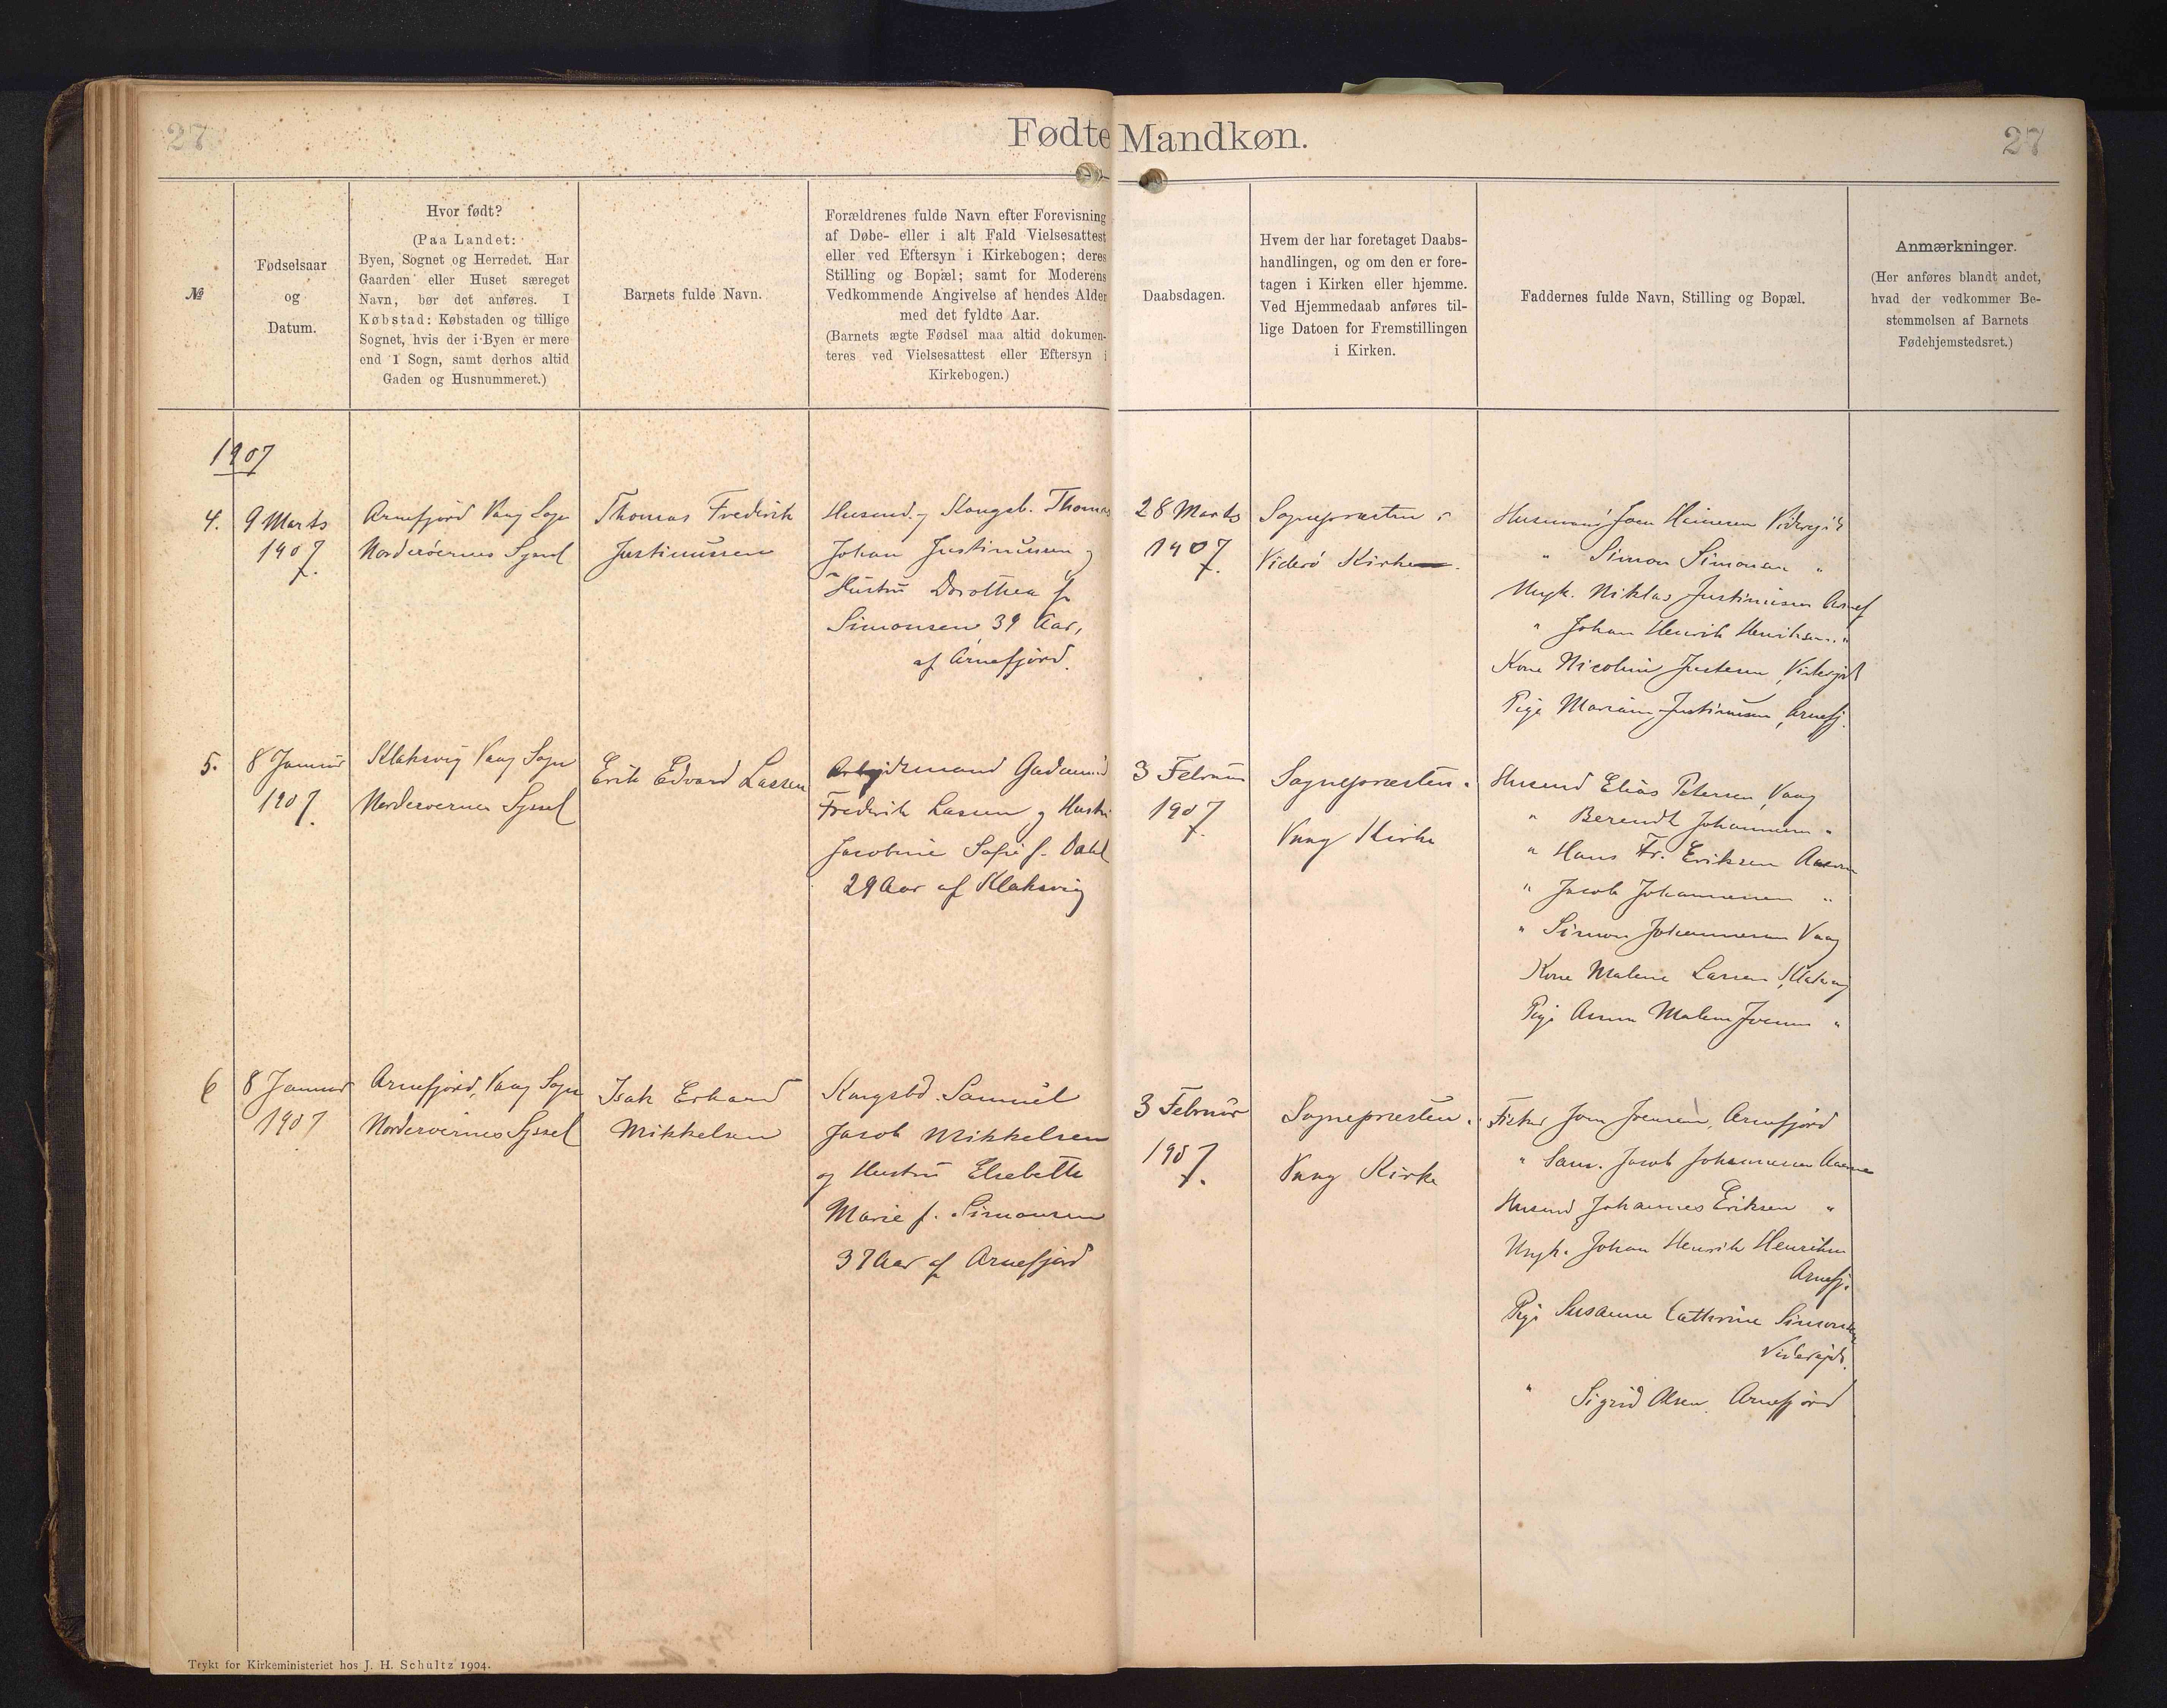 27
Fødte Mandkøn.
27
№
Fødselsaar
og
Datum.
Hvor født?
(Paa Landet:
Byen, Sognet og Herredet. Har
Gaarden eller Huset særeget
Navn, bør det anføres. I
Købstad: Købstaden og tillige
Sognet, hvis der i Byen er mere
end 1 Sogn, samt derhos altid
Gaden og Husnummeret.)
Barnets fulde Navn.
Forældrenes fulde Navn efter Forevisning
af Døbe- eller i alt Fald Vielsesattest
eller ved Eftersyn i Kirkebogen; deres
Stilling og Bopæl; samt for Moderens
Vedkommende Angivelse af hendes Alder
med det fyldte Aar.
(Barnets ægte Fødsel maa altid dokumen-
teres ved Vielsesattest eller Eftersyn i
Kirkebogen.)
Daabsdagen.
Hvem der har foretaget Daabs-
handlingen, og om den er fore-
tagen i Kirken eller hjemme.
Ved Hjemmedaab anføres til-
lige Datoen for Fremstillingen
i Kirken.
Faddernes fulde Navn, Stilling og Bopæl.
Anmærkninger.
(Her anføres blandt andet,
hvad der vedkommer Be-
stemmelsen af Barnets
Fødehjemstedsret.)
1907
4.
9 Marts
1907.
Arnefjord Vaag Sogn
Norderøernes Syssel
Thomas Frederik
Justinussen
Husmd. og Kongsb. Thomas
Johan Justinussen og
Hustru Dorothea f.
Simonsen 39 Aar,
af Arnefjord.
28 Marts
1907.
Sognepræsten i
Viderø Kirke.
Husmand Joen Heinesen Viderejde
" Simon Simonsen "
Ungk. Niklas Justinussen Arnef
" Johan Henrik Henriksen "
Kone Nicoline Justesen, Viderejde
Pige Justinussen, Arnefj.
5.
8 Januar
1907.
Klaksvig Vaag Sogn
Norderøernes Syssel
Erik Edvard Lassen
Arbejdsmand
Frederik Lassen og Hustru
Jacobine Sofie f. Dahl
29 Aar af Klaksvig
3 Februar
1907.
Sognepræsten i
Vaag Kirke
Husmd Elias Petersen, Vaag
" Berendt Johannesen "
" Hans Fr. Eriksen
" Jacob Johannesen "
" Simon Johannesen Vaag
Kone Malene Lassen, Klaksvig
Pige Anna Malene Joensen "
6
8 Januar
1907
Arnefjord, Vaag Sogn
Norderøernes Syssel
Isak Erhard
Mikkelsen
Kongsbd. Samuel
Jacob Mikkelsen
og Hustru Elsebeth
Marie f. Simonsen
37 Aar af Arnefjord
3 Februar
1907.
Sognepræsten i
Vaag Kirke
Fisker Joen Joensen, Arnefjord
" Sam. Jacob Johannesen
Husmd Johannes Eriksen "
Ungk. Johan Henrik Henriksen
Arnefj.
Pige Susanne Cathrine Simonsen
Viderejde.
" Sigrid Olsen, Arnefjord
Trykt for Kirkeministeriet hos J. H. Schultz 1904.